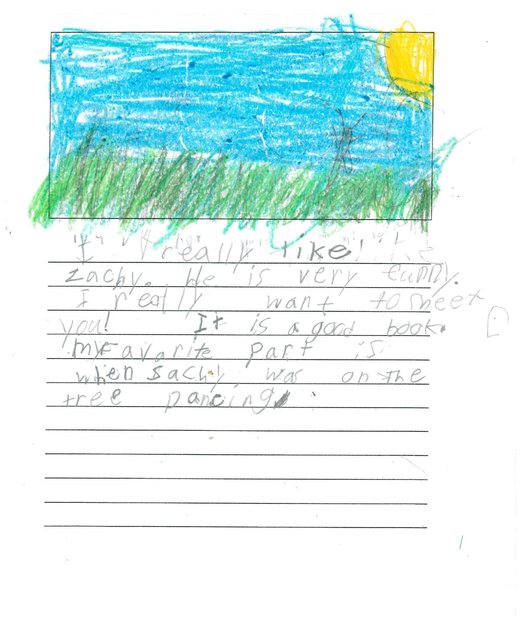 I really like
zachy. He is very funny.
I really want to meet
you! It is a good book.
my favarite part is
when sachy was on the
tree pancing